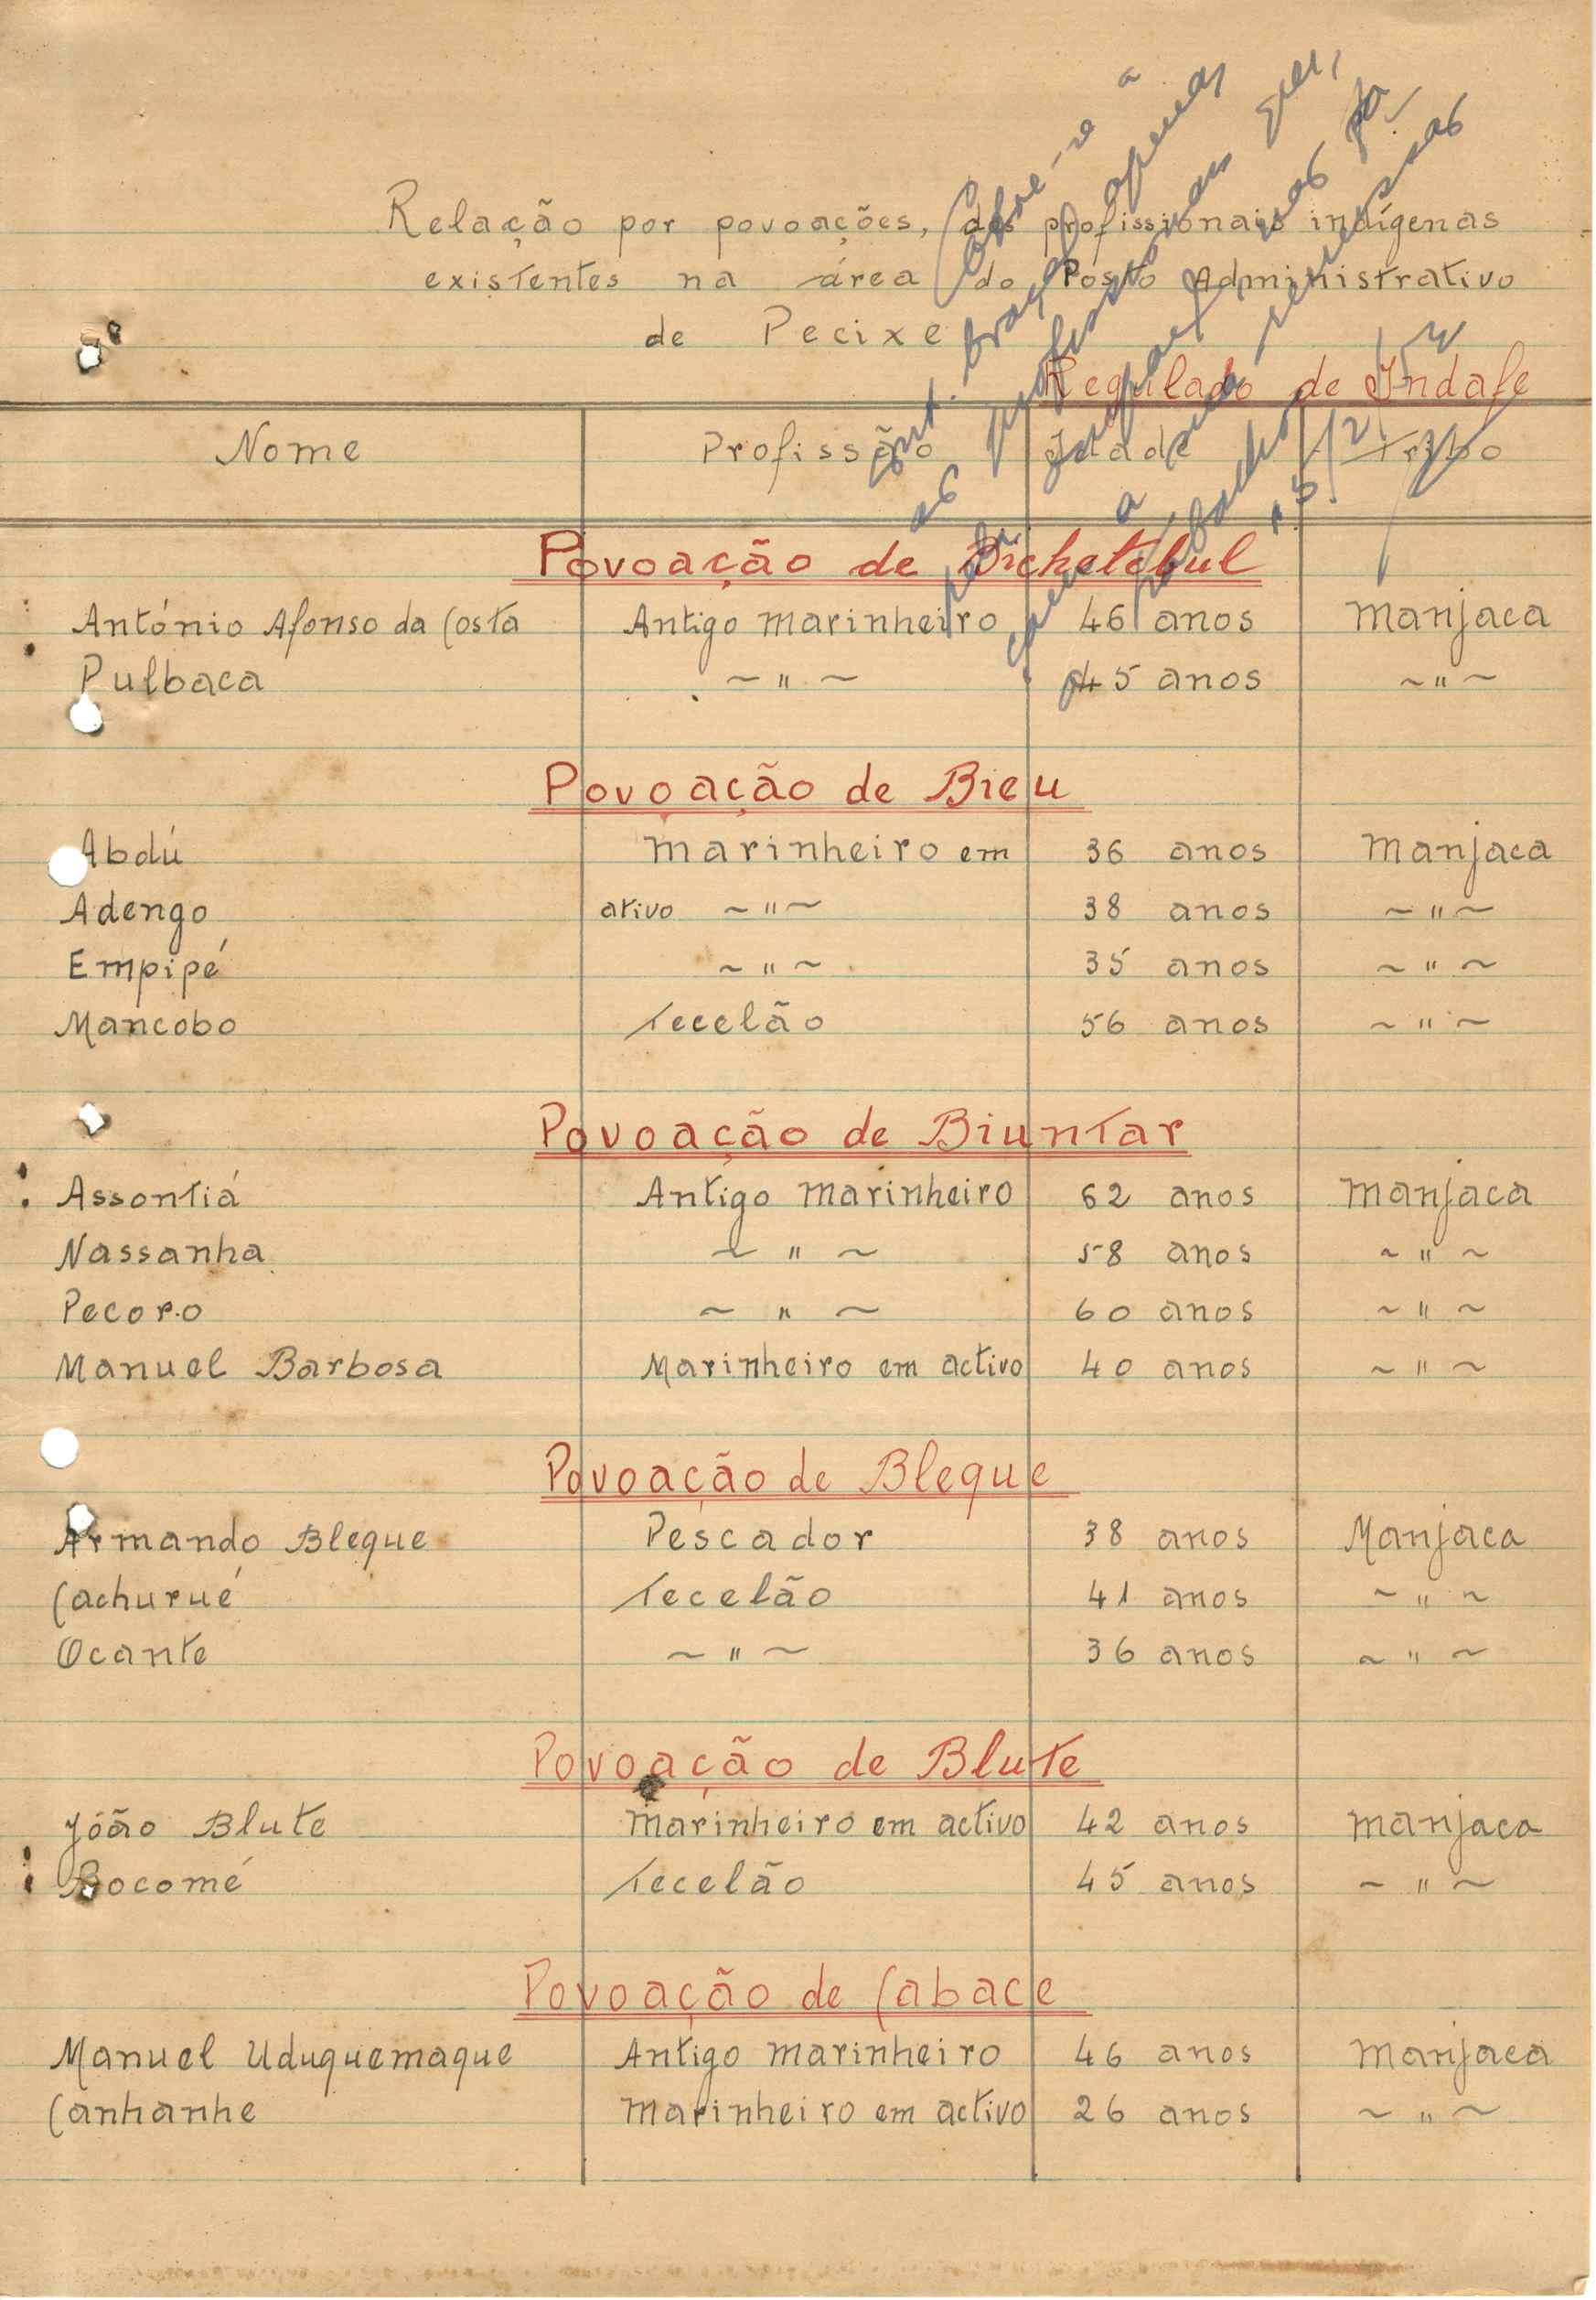 Relação por povoações, dos profissionais indígenas
existentes na área do Pôsto Administrativo
de Pecixe
Regulado de Indafe
Nome Profissão Idade Tribo
Povoação de Bicketebul
António Afonso da Costa Antigo marinheiro 46 anos Manjaca
Pulbaca ~ " ~ 45 anos ~ " ~
Povoação de Bieu
Abdú Marinheiro em 36 anos Manjaca
Adengo ativo ~ " ~ 38 anos ~ " ~
Empipé ~ " ~ 35 anos ~ " ~
Mancobo Tecelão 56 anos ~ " ~
Povoação de Biuntar
Assontiá Antigo marinheiro 62 anos Manjaca
Nassanha ~ " ~ 58 anos ~ " ~
Pecoro ~ " ~ 60 anos ~ " ~
Manuel Barbosa Marinheiro em activo 40 anos ~ " ~
Povoação de Bleque
Armando Bleque Pescador 38 anos Manjaca
Cachurué Tecelão 41 anos ~ " ~
Ocante ~ " ~ 36 anos ~ " ~
Povoação de Blute
Jóão Blute Marinheiro em activo 42 anos Manjaca
Bocomé Tecelão 45 anos ~ " ~
Povoação de Cabace
Manuel Uduquemaque Antigo marinheiro 46 anos Manjaca
Canhanhe Marinheiro em activo 26 anos ~ " ~